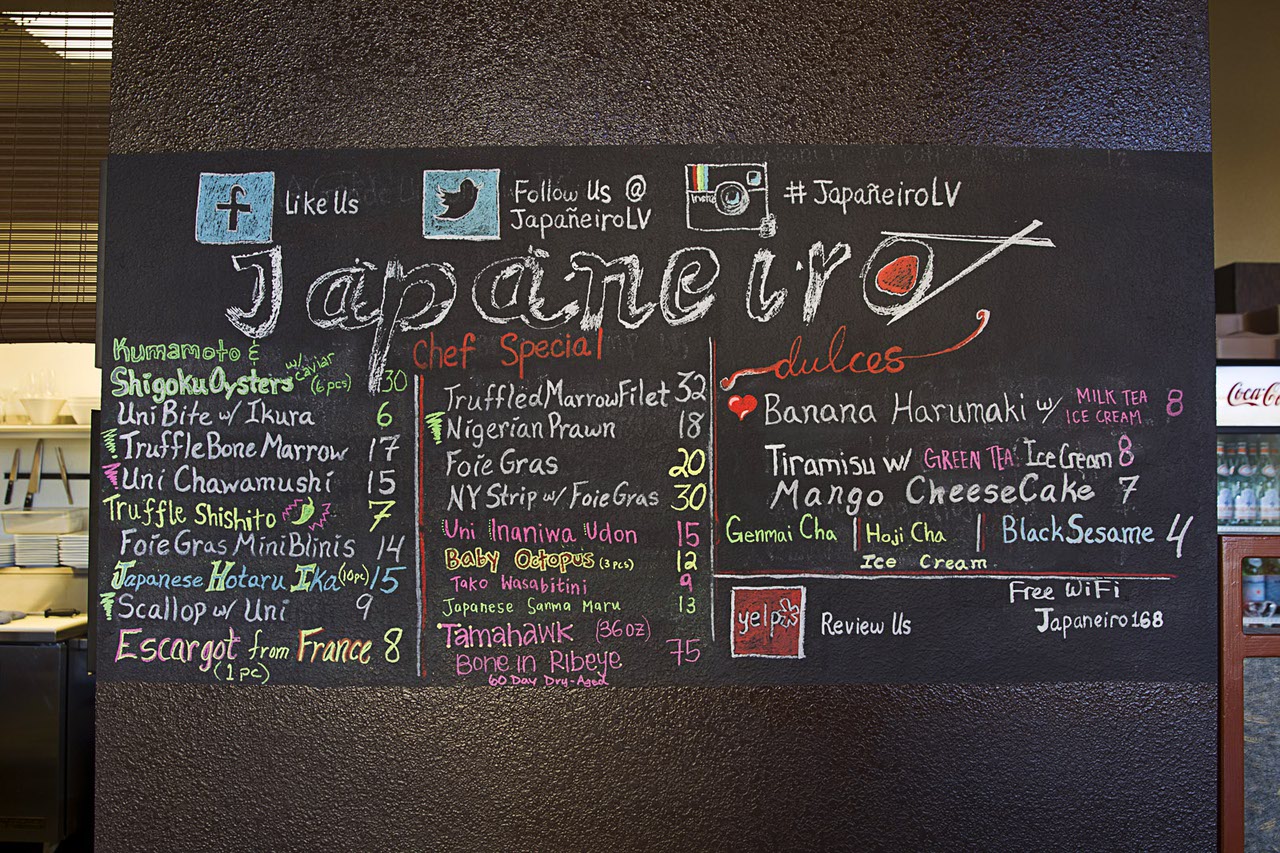 f
Like Us
Follow Us @
JapañeiroLV
Insta
# JapañeiroLV
Japaneiro
Kumamoto &
Shigoku Oysters w/ caviar (6 pcs) 30
Uni Bite w/ Ikura 6
Truffle Bone Marrow 17
Uni Chawamushi 15
Truffle Shishito 7
Foie Gras Mini Blinis 14
Japanese Hotaru Ika (10pc) 15
Scallop w/ Uni 9
Escargot from France 8
(1 pc)
Chef Special
Truffled Marrow Filet 32
Nigerian Prawn 18
Foie Gras 20
NY Strip w/ Foie Gras 30
Uni Inaniwa Udon 15
Baby Octopus (3 pcs) 12
Tako Wasabitini 9
Japanese Sanma Maru 13
Tamahawk (36oz)
Bone in Ribeye 75
60 Day Dry-Aged
dulces
Banana Harumaki w/ MILK TEA ICE CREAM 8
Tiramisu w/ GREEN TEA Ice Cream 8
Mango CheeseCake 7
Genmai Cha | Hoji Cha | Black Sesame 4
Ice Cream
yelp
Review Us
Free WiFi
Japaneiro168
Coca-Co